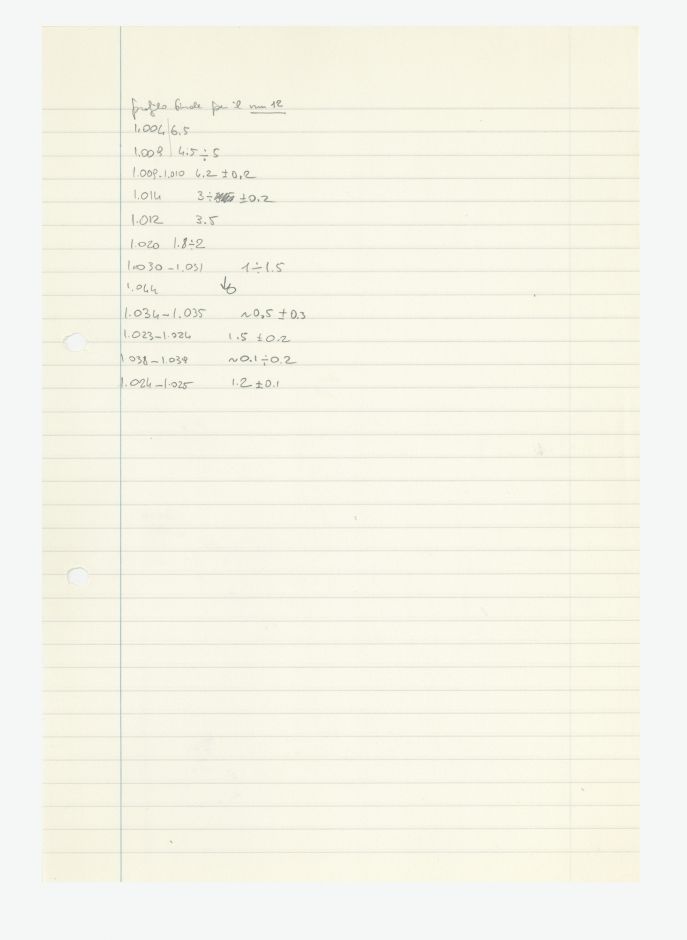 profilo finale per il run 12
1.004 6.5
1.009 4.5÷5
1.009-1.010 4.2 ±0,2
1.014 3÷ ±0.2
1.012 3.5
1.020 1.8÷2
1.030-1.031 1÷1.5
1.044 ↓0
1.034-1.035 ~0,5 ±0.3
1.023-1.024 1.5 ±0.2
1.038-1.039 ~0.1÷0.2
1.024-1.025 1.2 ±0.1